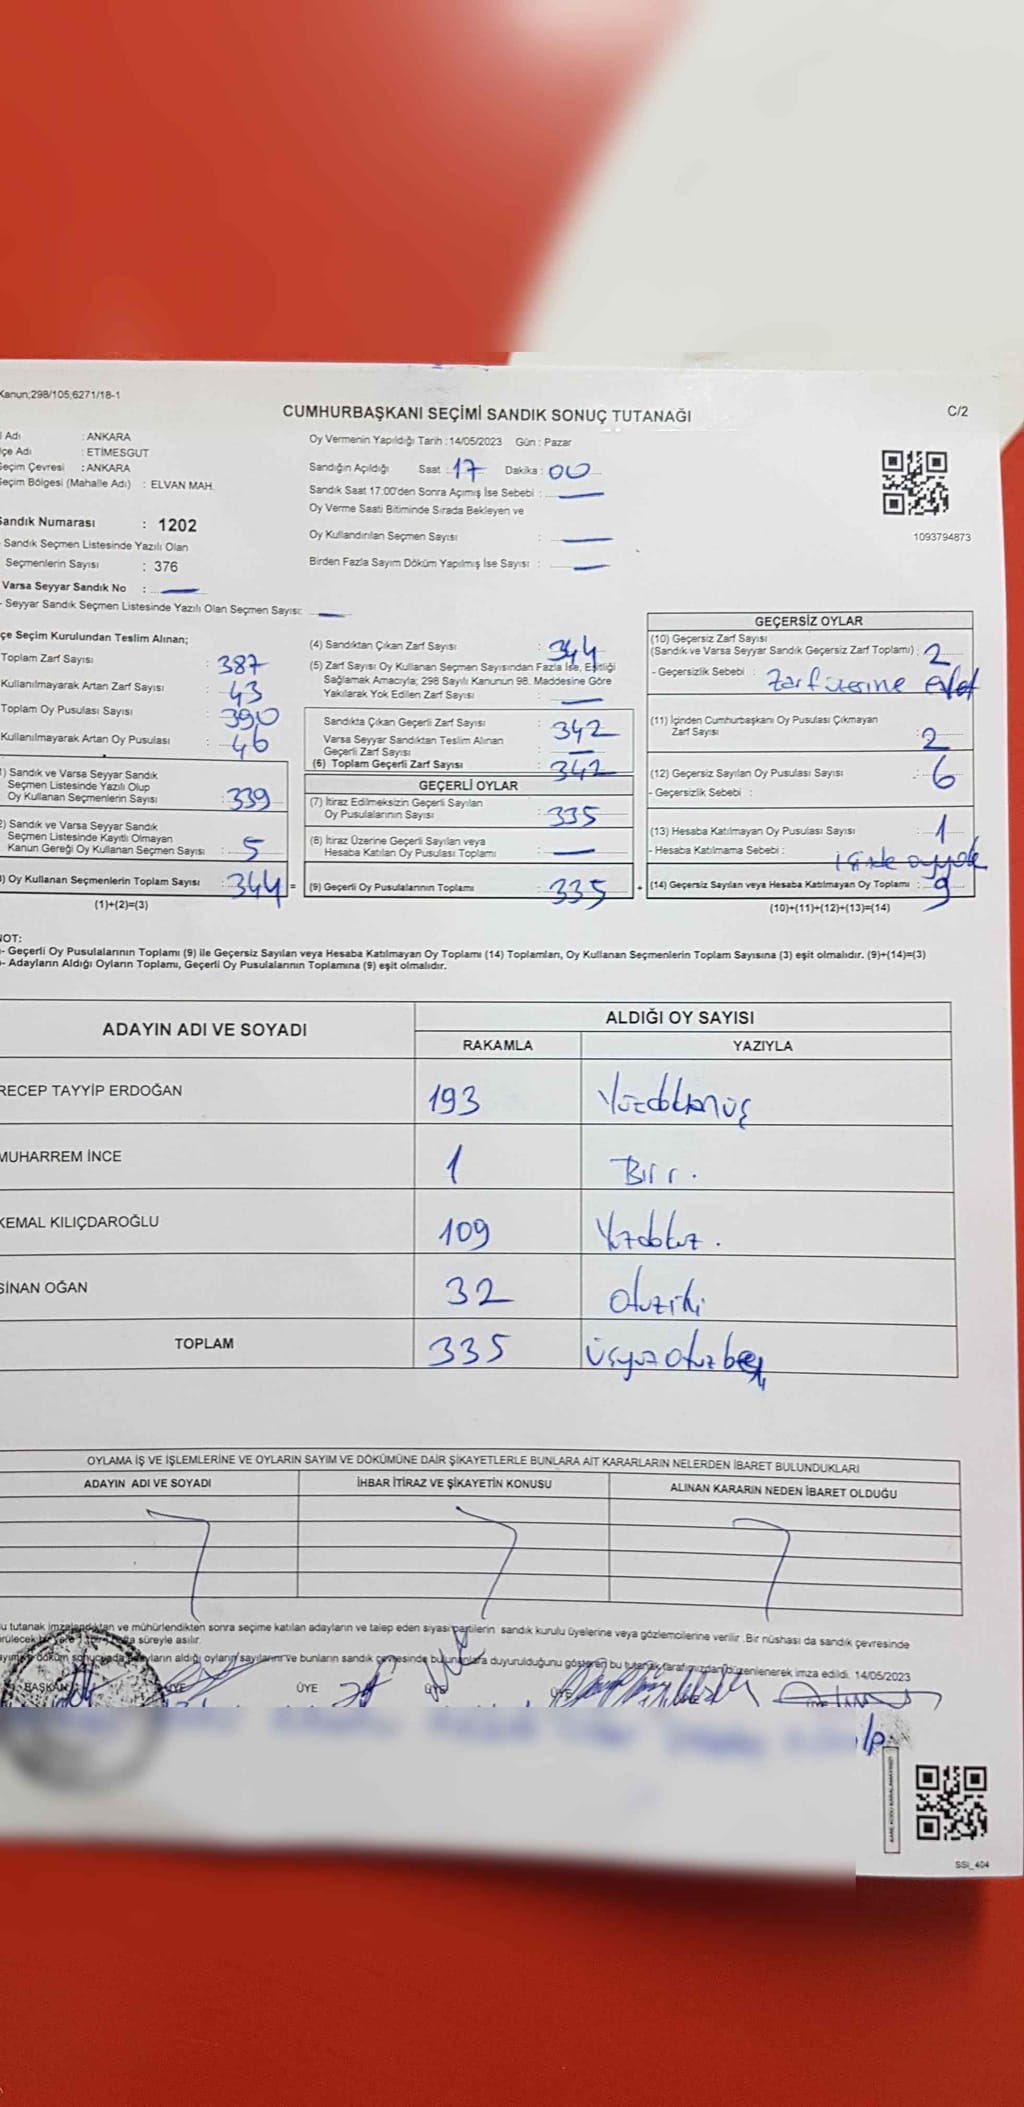 Kanun;298/105;6271/18-1
CUMHURBAŞKANI SEÇİMİ SANDIK SONUÇ TUTANAĞI
C/2
Adı : ANKARA
çe Adı : ETİMESGUT
Seçim Çevresi : ANKARA
Seçim Bölgesi (Mahalle Adı) : ELVAN MAH.
Sandık Numarası : 1202
Sandık Seçmen Listesinde Yazılı Olan
Seçmenlerin Sayısı : 376
Varsa Seyyar Sandık No :
- Seyyar Sandık Seçmen Listesinde Yazılı Olan Seçmen Sayısı:
Oy Vermenin Yapıldığı Tarih : 14/05/2023 Gün : Pazar
Sandığın Açıldığı Saat : 17 Dakika : 00
Sandık Saat 17:00'den Sonra Açımış İse Sebebi :
Oy Verme Saati Bitiminde Sırada Bekleyen ve
Oy Kullandırılan Seçmen Sayısı :
Birden Fazla Sayım Döküm Yapılmış İse Sayısı :
1093794873
çe Seçim Kurulundan Teslim Alınan;
Toplam Zarf Sayısı : 387
Kullanılmayarak Artan Zarf Sayısı : 43
Toplam Oy Pusulası Sayısı : 390
Kullanılmayarak Artan Oy Pusulası : 46
1) Sandık ve Varsa Seyyar Sandık
Seçmen Listesinde Yazılı Olup
Oy Kullanan Seçmenlerin Sayısı : 339
2) Sandık ve Varsa Seyyar Sandık
Seçmen Listesinde Kayıtlı Olmayan
Kanun Gereği Oy Kullanan Seçmen Sayısı : 5
) Oy Kullanan Seçmenlerin Toplam Sayısı : 344 =
(1)+(2)=(3)
(4) Sandıktan Çıkan Zarf Sayısı : 344
(5) Zarf Sayısı Oy Kullanan Seçmen Sayısından Fazla İse, Eşitliği
Sağlamak Amacıyla; 298 Sayılı Kanunun 98. Maddesine Göre
Yakılarak Yok Edilen Zarf Sayısı :
Sandıkta Çıkan Geçerli Zarf Sayısı : 342
Varsa Seyyar Sandıktan Teslim Alınan
Geçerli Zarf Sayısı :
(6) Toplam Geçerli Zarf Sayısı : 342
GEÇERLİ OYLAR
(7) İtiraz Edilmeksizin Geçerli Sayılan
Oy Pusulalarının Sayısı : 335
(8) İtiraz Üzerine Geçerli Sayılan veya
Hesaba Katılan Oy Pusulası Toplamı :
(9) Geçerli Oy Pusulalarının Toplamı : 335 +
GEÇERSİZ OYLAR
(10) Geçersiz Zarf Sayısı
(Sandık ve Varsa Seyyar Sandık Geçersiz Zarf Toplamı) : 2
- Geçersizlik Sebebi : Zarf üzerine evet
(11) İçinden Cumhurbaşkanı Oy Pusulası Çıkmayan
Zarf Sayısı : 2
(12) Geçersiz Sayılan Oy Pusulası Sayısı : 6
- Geçersizlik Sebebi :
(13) Hesaba Katılmayan Oy Pusulası Sayısı : 1
- Hesaba Katılmama Sebebi :
(14) Geçersiz Sayılan veya Hesaba Katılmayan Oy Toplamı : 9
(10)+(11)+(12)+(13)=(14)
NOT:
- Geçerli Oy Pusulalarının Toplamı (9) ile Geçersiz Sayılan veya Hesaba Katılmayan Oy Toplamı (14) Toplamları, Oy Kullanan Seçmenlerin Toplam Sayısına (3) eşit olmalıdır. (9)+(14)=(3)
- Adayların Aldığı Oyların Toplamı, Geçerli Oy Pusulalarının Toplamına (9) eşit olmalıdır.
ADAYIN ADI VE SOYADI
ALDIĞI OY SAYISI
RAKAMLA YAZIYLA
RECEP TAYYİP ERDOĞAN 193
MUHARREM İNCE 1 Bir.
KEMAL KILIÇDAROĞLU 109 Yüzdokuz.
SİNAN OĞAN 32 Otuziki
TOPLAM 335 Üçyüzotuzbeş
OYLAMA İŞ VE İŞLEMLERİNE VE OYLARIN SAYIM VE DÖKÜMÜNE DAİR ŞİKAYETLERLE BUNLARA AİT KARARLARIN NELERDEN İBARET BULUNDUKLARI
ADAYIN ADI VE SOYADI İHBAR İTİRAZ VE ŞİKAYETİN KONUSU ALINAN KARARIN NEDEN İBARET OLDUĞU
u tutanak imzalandıktan ve mühürlendikten sonra seçime katılan adayların ve talep eden siyasi partilerin sandık kurulu üyelerine veya gözlemcilerine verilir. Bir nüshası da sandık çevresinde
süreyle asılır.
döküm sonucunda adayların aldığı oyların sayılarını ve bunların sandık çevresinde bulunanlara duyurulduğunu gösteren bu tutanak tarafımızdan düzenlenerek imza edildi. 14/05/2023
BAŞKAN ÜYE ÜYE ÜYE ÜYE
KARE KODU KARALAMAYINIZ!
SSI_404